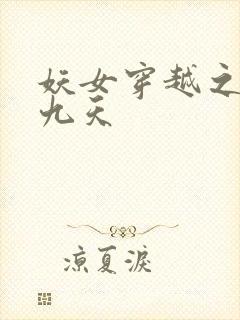 妖女穿越之
九天
凉夏淚